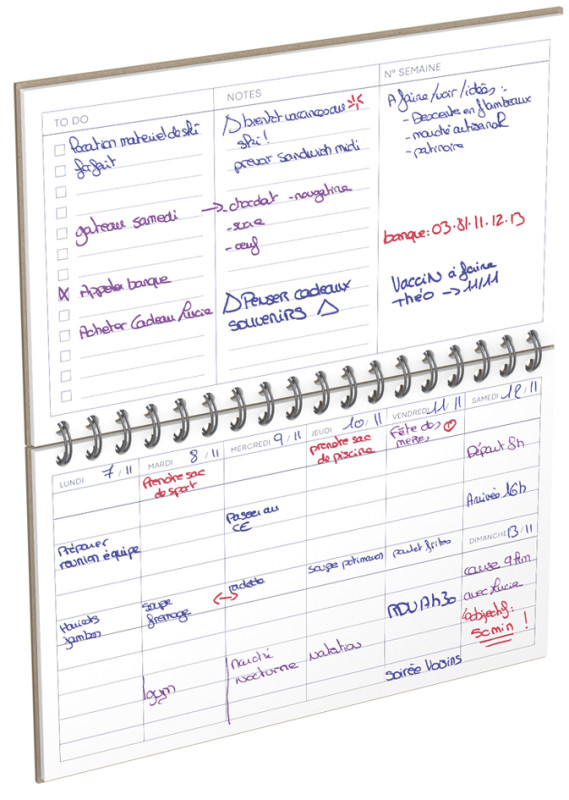 TO DO
Location materiel de ski
forfait
gateau samedi
Appeler banque
Acheter Cadeau Lucie
NOTES
bientot vacances au
ski !
prevoir sandwich midi
→ chocolat - nougatine
- sucre
- œuf
Penser cadeaux
souvenirs
N° SEMAINE
A faire/voir/idées :
- Descente en flambeaux
- marché artisanal
- patinoire
banque : 03.81.11.12.13
Vaccin à faire
Théo → 11/11
LUNDI 7/11
Préparer
reunion équipe
Haricots
jambon
MARDI 8/11
Prendre sac
de sport
soupe
fromage
gym
MERCREDI 9/11
Passer au
CE
raclette
marché
nocturne
JEUDI 10/11
prendre sac
de piscine
soupe potimarron
Natation
VENDREDI 11/11
Fête des
meres
poulet frites
RDV 17h30
soirée voisins
SAMEDI 12/11
Départ 8h
Arrivée 16h
DIMANCHE 13/11
course 9km
avec Lucie
objectif :
50 min !